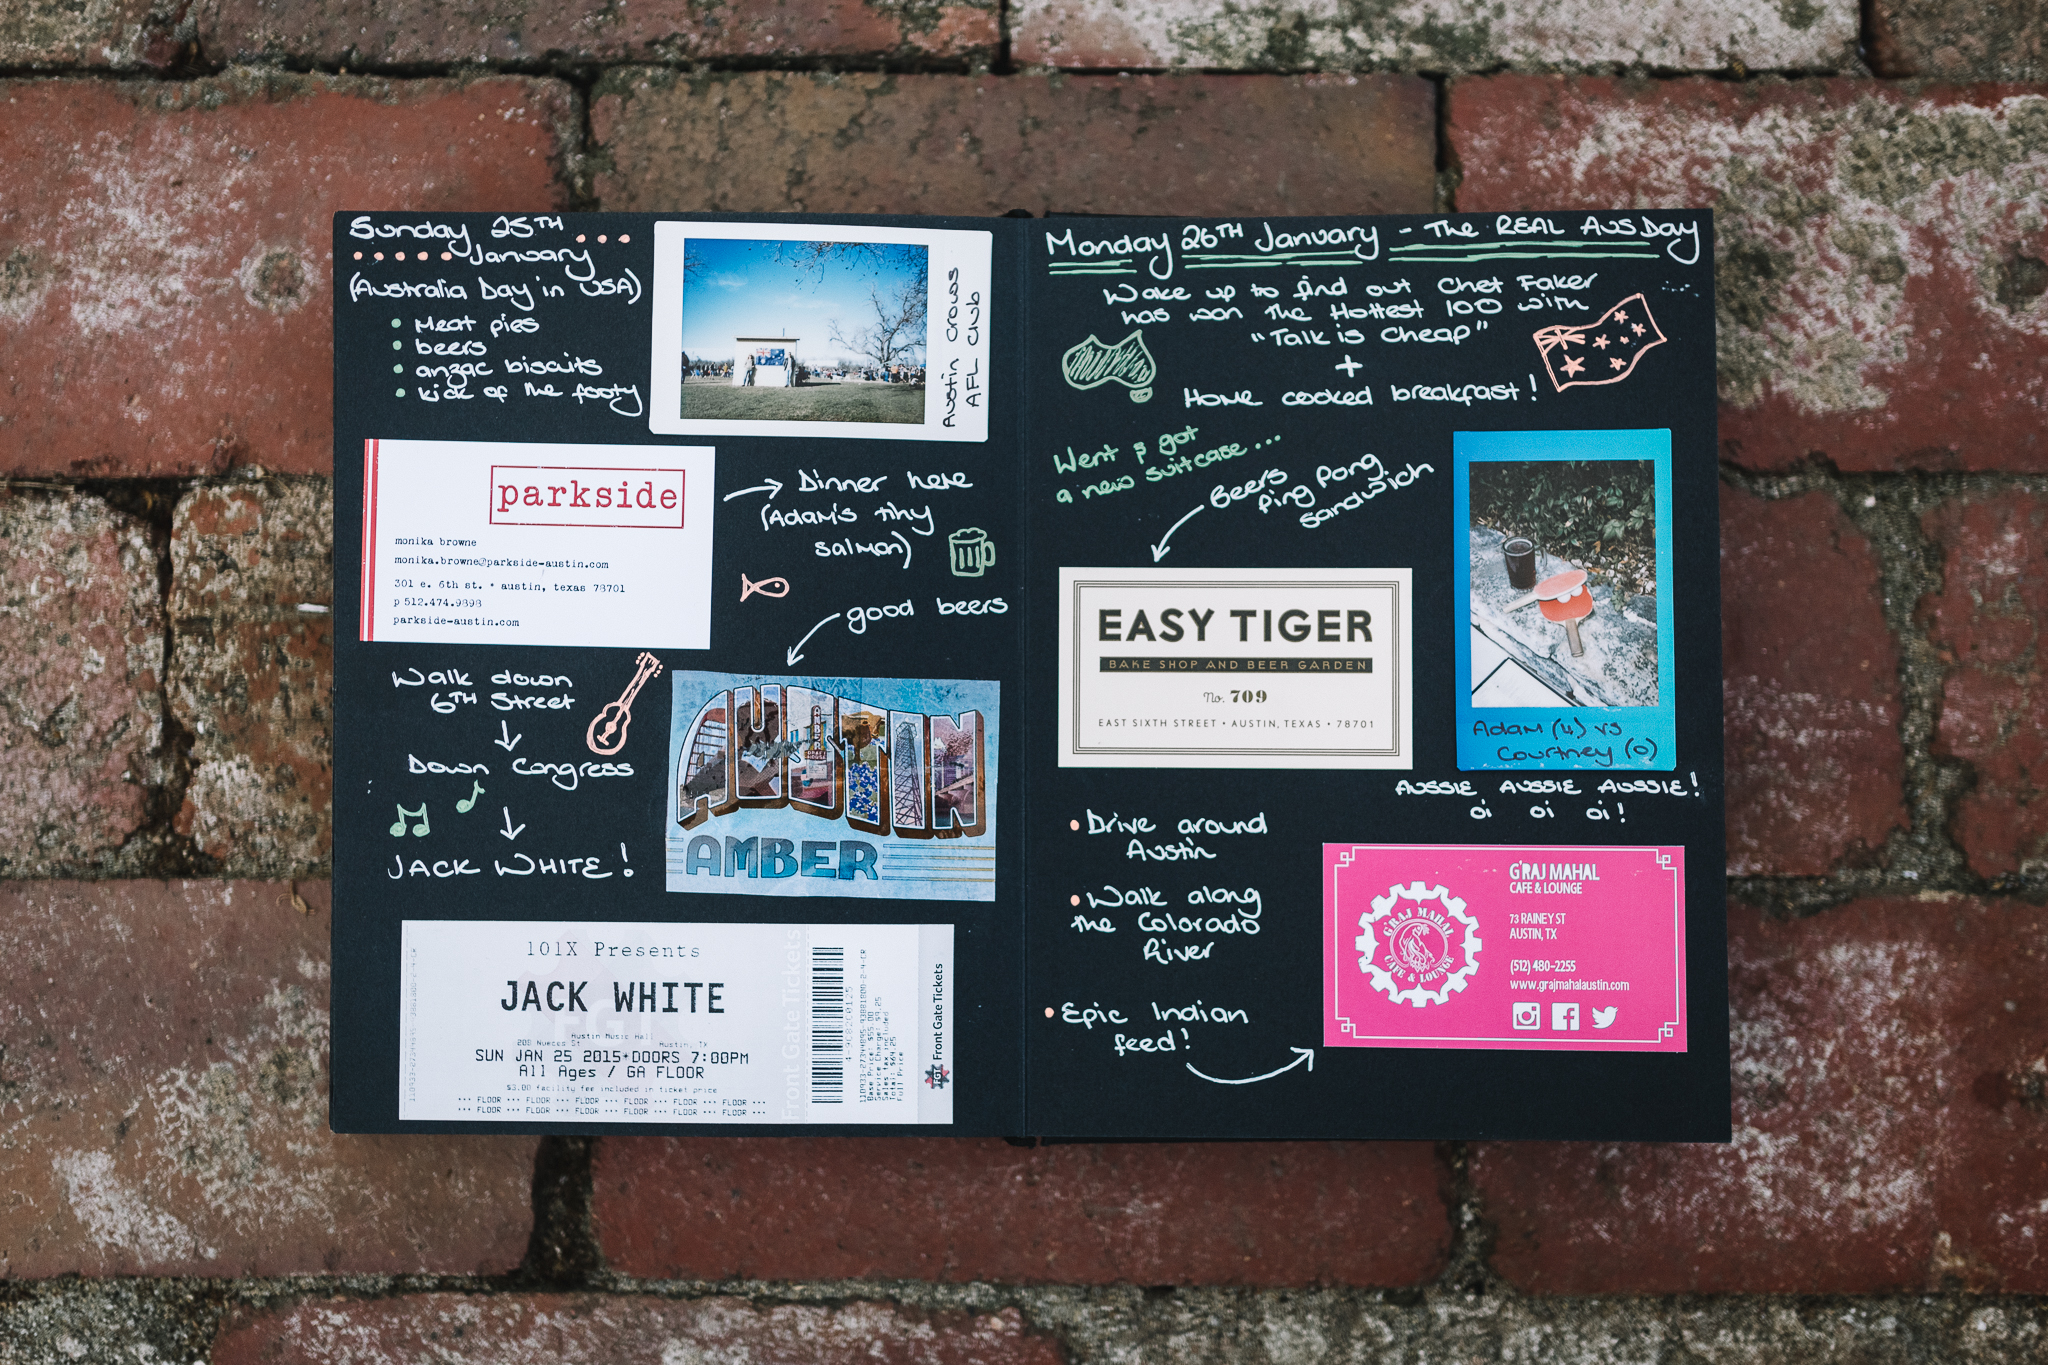 Sunday 25TH
January
(Australia Day in USA)
Meat pies
beers
anzac biscuits
kick of the footy
Austin Crows
AFL Club
parkside
monika browne
monika.browne@parkside-austin.com
301 e. 6th st. * austin, texas 78701
p 512.474.9898
parkside-austin.com
Dinner here
(Adam's tiny
salmon)
good beers
Walk down
6TH Street
Down Congress
JACK WHITE!
AUSTIN
AMBER
101X Presents
JACK WHITE
Austin Music Hall
208 Nueces St Austin, TX
SUN JAN 25 2015 • DOORS 7:00PM
All Ages / GA FLOOR
$3.00 facility fee included in ticket price
*** FLOOR *** FLOOR *** FLOOR *** FLOOR *** FLOOR *** FLOOR ***
*** FLOOR *** FLOOR *** FLOOR *** FLOOR *** FLOOR *** FLOOR ***
Front Gate Tickets
Base Price: $55.00
Service Charge: $9.25
Sales tax included
Total: $64.25
Full Price
Front Gate Tickets
Monday 26TH January - The REAL AUS Day
Wake up to find out Chet Faker
has won the Hottest 100 with
"Talk is Cheap"
+
Home cooked breakfast!
Went & got
a new suitcase....
Beers
Ping Pong
Sandwich
EASY TIGER
BAKE SHOP AND BEER GARDEN
No. 709
EAST SIXTH STREET • AUSTIN, TEXAS • 78701
Adam (4) vs
Courtney (0)
AUSSIE AUSSIE AUSSIE!
Oi Oi Oi!
Drive around
Austin
Walk along
the Colorado
River
Epic Indian
feed!
G'RAJ MAHAL
CAFE & LOUNGE
G'RAJ MAHAL
CAFE & LOUNGE
73 RAINEY ST
AUSTIN, TX
(512) 480-2255
www.grajmahalaustin.com